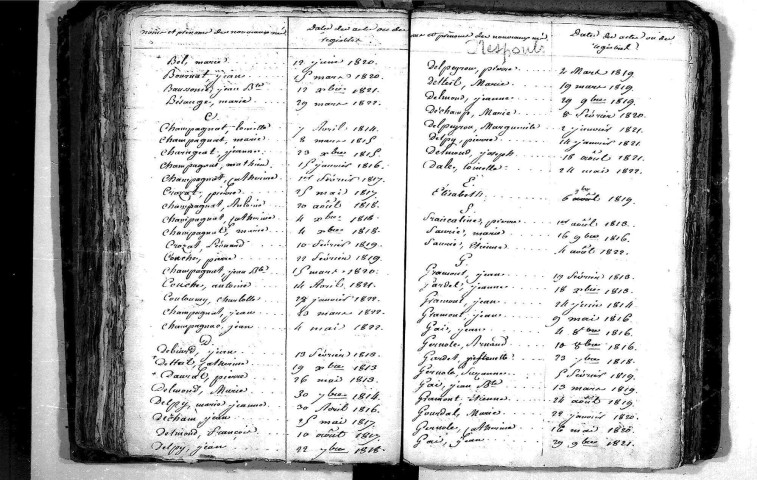 noms et prénoms des nouveaux nés
Dates des actes ou des registres
Bel, marie 12 juin 1820.
Bournat, jean 9 mars 1820.
Baussonie, jean Bte 12 xbre 1821.
Bésange, marie 29 mars 1822.
C.
Champagnat, 7 Avril 1814.
Champagnat, marie 8 mars 1815
jeanne 23 xbre 1815
Champagnat, mathieu 15 janvier 1816.
Champagnat, catherine 1er février 1817.
Crozat, pierre 25 mai 1817.
Champagnat, Antoine 20 août 1818.
Champagnat, catherine 4 xbre 1818.
Champagnat, marie 4 xbre 1818.
Crozat, 10 février 1819.
Couche, pierre 22 février 1819.
Champagnat, jean Bte 15 mars 1820.
Couche, antoine 14 Avril 1821.
Coulaumy, charlotte 28 janvier 1822.
Champagnat, jean 23 mars 1822.
Champagnac, jean 4 mai 1822.
D.
jean 13 février 1813.
Delteil, catherine 19 xbre 1813
Dauval, pierre 26 mai 1813.
Delmond, Marie 30 7bre 1814.
Delpy, marie jeanne 30 Avril 1816.
Décham jean 25 mai 1817.
Delmond, François 10 août 1817.
Delpy, jean 22 7bre 1818.
et prénoms des nouveaux nés
Dates des actes ou des registres
Delpeyrou, pierre 2 Mars 1819.
Delteil, Marie 19 mars 1819.
Delmond, jeanne 29 9bre 1819.
Déchamp, Marie 8 février 1820.
Delpeyrou, Marguerite 2 janvier 1821.
Delpy, pierre 14 janvier 1821.
Delmond, joseph 18 août 1821.
Dale, 24 mai 1822.
E.
Elizabeth 6 août 1819.
F.
pierre 1er août 1813.
Faurie, marie 16 9bre 1816.
Faurie, Etienne 4 août 1822.
G.
Gramont, jean 19 février 1813.
Gardet, jeanne 18 xbre 1813.
Gramont, jean 24 juin 1814.
Gramont, jean 9 mai 1816.
Gai, jean 4 8bre 1816.
Gernole, Arnaud 10 8bre 1816.
Gardet, 23 7bre 1818.
Gernole, Suzanne 5 février 1819.
Gai, jean Bte 13 mars 1819.
Gramont, Etienne 24 août 1819.
Gourdal, Marie 28 janvier 1820.
Gernole, catherine 16 mai 1820.
Gai, Jean 29 9bre 1821.